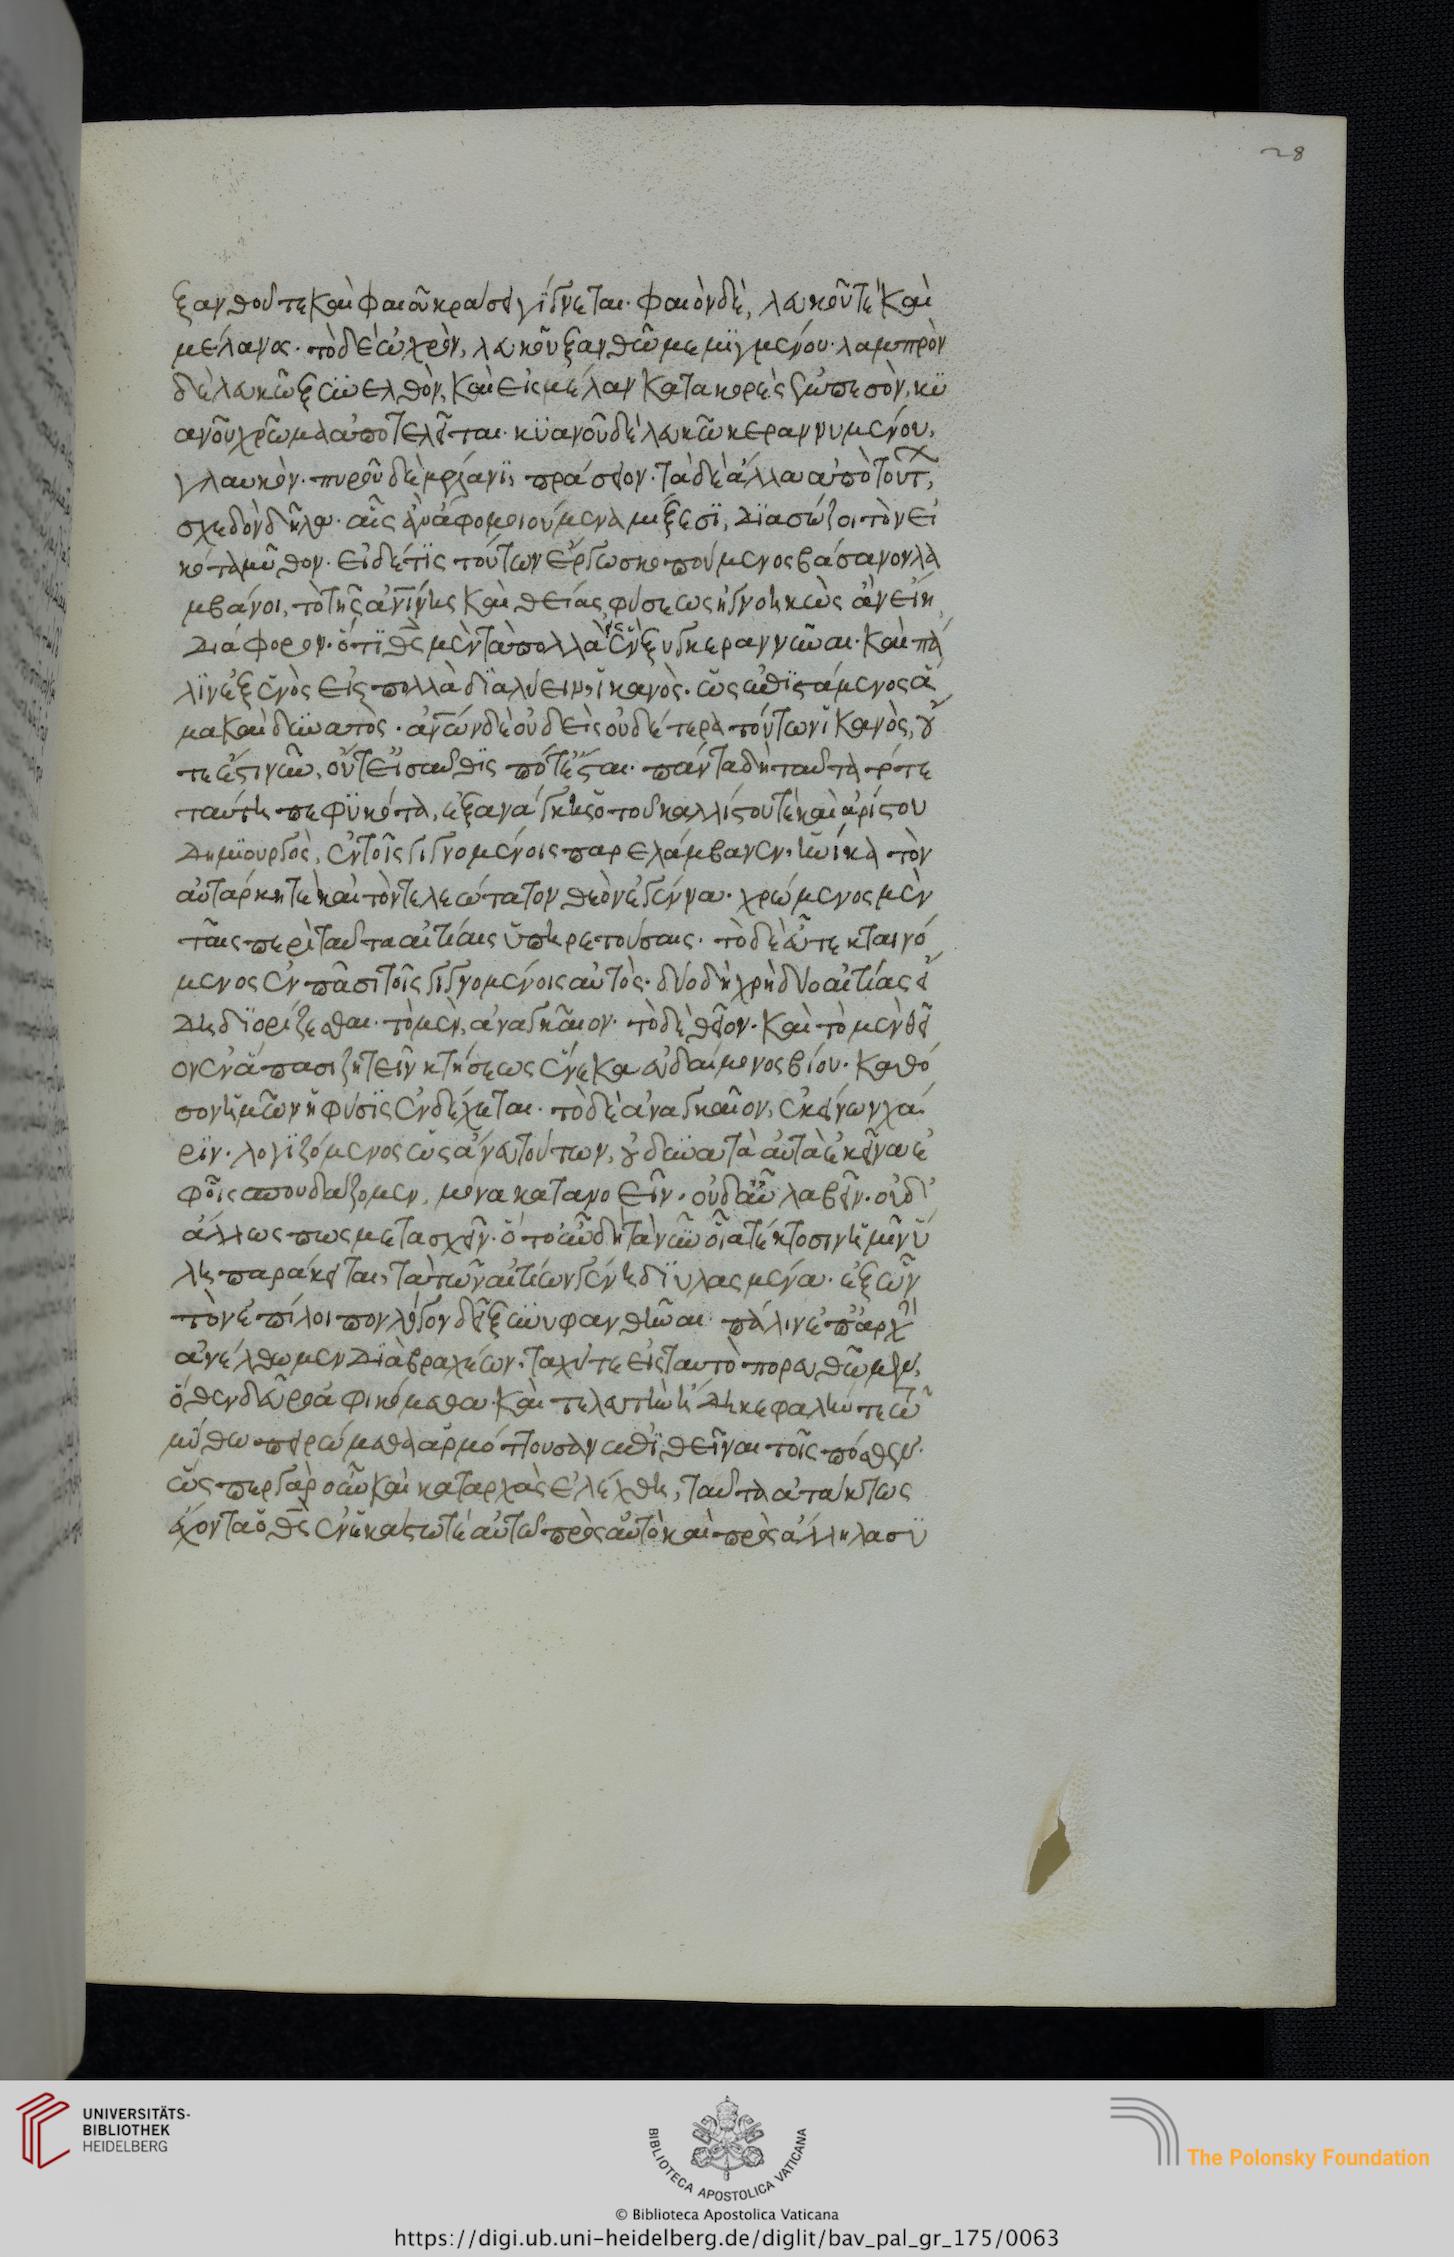 ξανθοῦ τε καὶ φαιοῦ κράσει γίγνεται· φαιὸν δὲ, λευκοῦ τὲ καὶ
μέλανος· τὸ δὲ ὠχρὸν, λευκοῦ ξανθῶ μεμϊγμένου· λαμπρὸν
δὲ λευκῶ ξϋνελθὸν, καὶ εἰς μέλαν κατακορὲς ἐμπεσὸν, κϋ
ανοῦν χρῶμα ἀποτελεῖται· κϋανοῦ δὲ λευκῶ κεραννυμένου,
γλαυκόν· πυροῦ δὲ μέλανϊ, πράσιον· τὰ δὲ ἄλλα ἀπὸ τούτ,
σχεδὸν δῆλα· αἷς ἂν ἀφομοιούμενα μίξεσϊ, διασώζοι τὸν εἰ
κότα μῦθον· εἰ δέ τϊς τούτων ἔργω σκοπούμενος βάσανον λα
μβάνοι, τὸ τῆς ἀνίνης καὶ θείας φύσεως ἠγνοηκὼς ἂν εἴη
διάφορον· ὅτϊ θς μὲν τὰ πολλὰ εἰς ἓν ξυγκεραννύναι· καὶ πά
λϊν ἐξ ἑνὸς εἰς πολλὰ δϊαλύειν, ἱκανὸς· ὡς ἐπϊστάμενος ἅ
μα καὶ δϋνατὸς· ἀνων δὲ οὐδεὶς οὐδέτερα τούτων ἱκανὸς, οὔ
τε ἔστι νῦν, οὔτε εἰσαῦθϊς πότε ἔσται· πάντα δὴ ταῦτα τότε
ταύτη πεφϋκότα, ἐξ ἀνάγκης ὁ τοῦ καλλίστου τὲ καὶ ἀρίστου
δημϊουργὸς, ἐν τοῖς γιγνομένοις παρελάμβανεν· ἡνίκα τὸν
αὐτάρκη τὲ καὶ τὸν τελεώτατον θεὸν ἐγέννα· χρώμενος μὲν
ταῖς περὶ ταῦτα αἰτίαις ὑπηρετούσαις· τὸ δὲ εὖ τεκταινό
μενος ἐν πᾶσι τοῖς γιγνομένοις αὐτὸς· δϊὸ δὴ χρὴ δύο αἰτίας εἴ
δη δϊορίζεσθαι· τὸ μὲν, ἀναγκαῖον· τὸ δὲ θεῖον· καὶ τὸ μὲν θεῖ
ον ἐν ἅπασι ζητεῖν κτήσεως ἕνεκα εὐδαίμονος βίου· καθό
σον ἡμῶν ἡ φύσϊς ἐνδέχεται· τὸ δὲ ἀναγκαῖον, ἐκείνων χά
ρϊν· λογϊζόμενος ὡς ἄνευ τούτων, οὐ δϋνατὰ αὐτὰ ἐκεῖνα ἐ
φοῖς σπουδάζομεν, μόνα κατανοεῖν· οὐδ' αὖ λαβεῖν· οὐδ'
ἄλλως πως μετασχεῖν· ὅτ' οὖν δὴ τὰ νῦν οἷα τέκτοσιν ἡμῖν ὕ
λη παράκειται, τὰ τῶν αἰτίων γένη δϊϋλασμένα· ἐξ ὧν
τὸν ἐπίλοιπον λόγον δεῖ ξϋνυφανθῆναι· πάλιν ἐπ' ἀρχὴν
ἀνέλθωμεν διὰ βραχέων· ταχύ τε εἰς ταυτὸ πορευθῶμεν,
ὅθεν δεῦρο ἀφικόμεθα· καὶ τελευτὴν ἤδη κεφαλήν τε τῶ
μύθω πειρώμεθα ἁρμόττουσαν ἐπϊθεῖναι τοῖς πρόσθεν·
ὥσπερ γὰρ οὖν καὶ καταρχὰς ἐλέχθη, ταῦτα ἀτάκτως
ἔχοντα ὁ θς ἐν ἑκάστω τὲ αὐτῶ πρὸς αὐτὸ καὶ πρὸς ἄλληλα σϋ
28
UNIVERSITÄTS-
BIBLIOTHEK
HEIDELBERG
BIBLIOTECA APOSTOLICA VATICANA
© Biblioteca Apostolica Vaticana
The Polonsky Foundation
https://digi.ub.uni-heidelberg.de/diglit/bav_pal_gr_175/0063